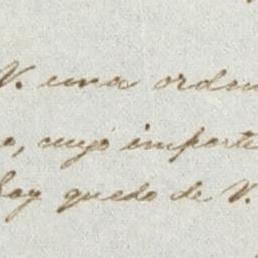 V. una orden
o, cuyo importe
hoy quedo de V.